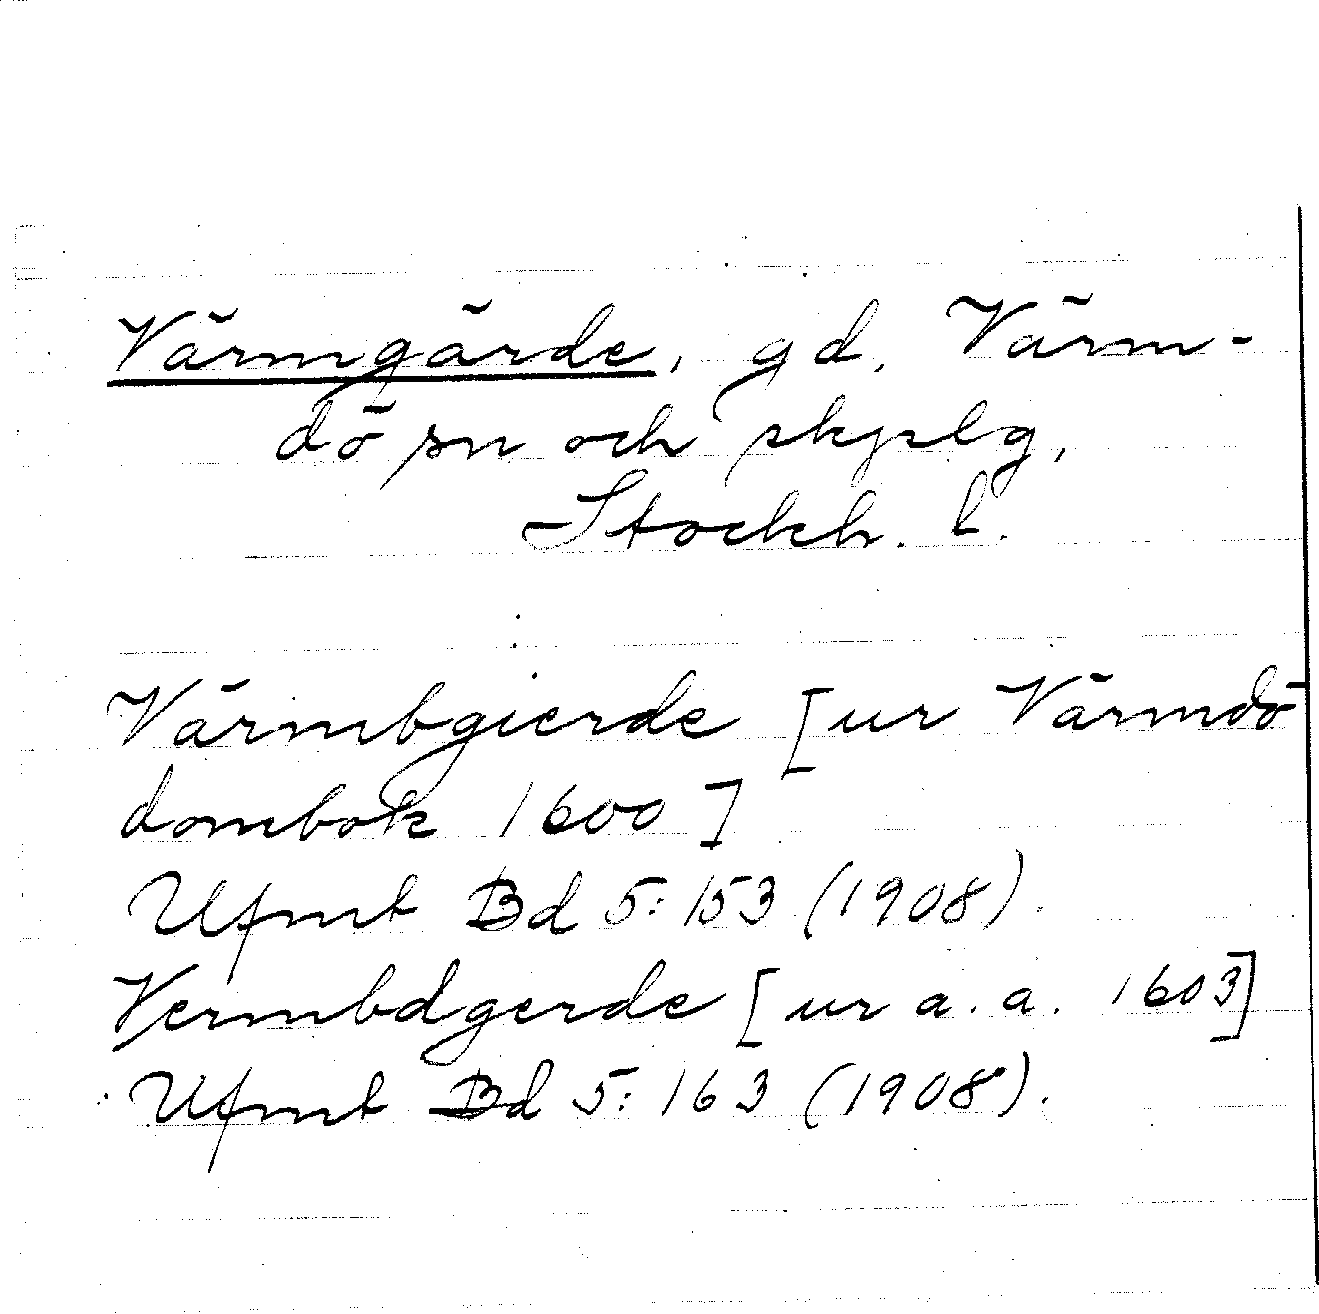 Värmgärde, gd, Värm-
dö sn och skjslg,
Stockh. l.
Värmbgierde [ur Värmdö
dombok 1600]
Ufmt Bd 5: 153 (1908).
Vermbdgerde [ur a. a. 1603]
Ufmt Bd 5: 163 (1908).